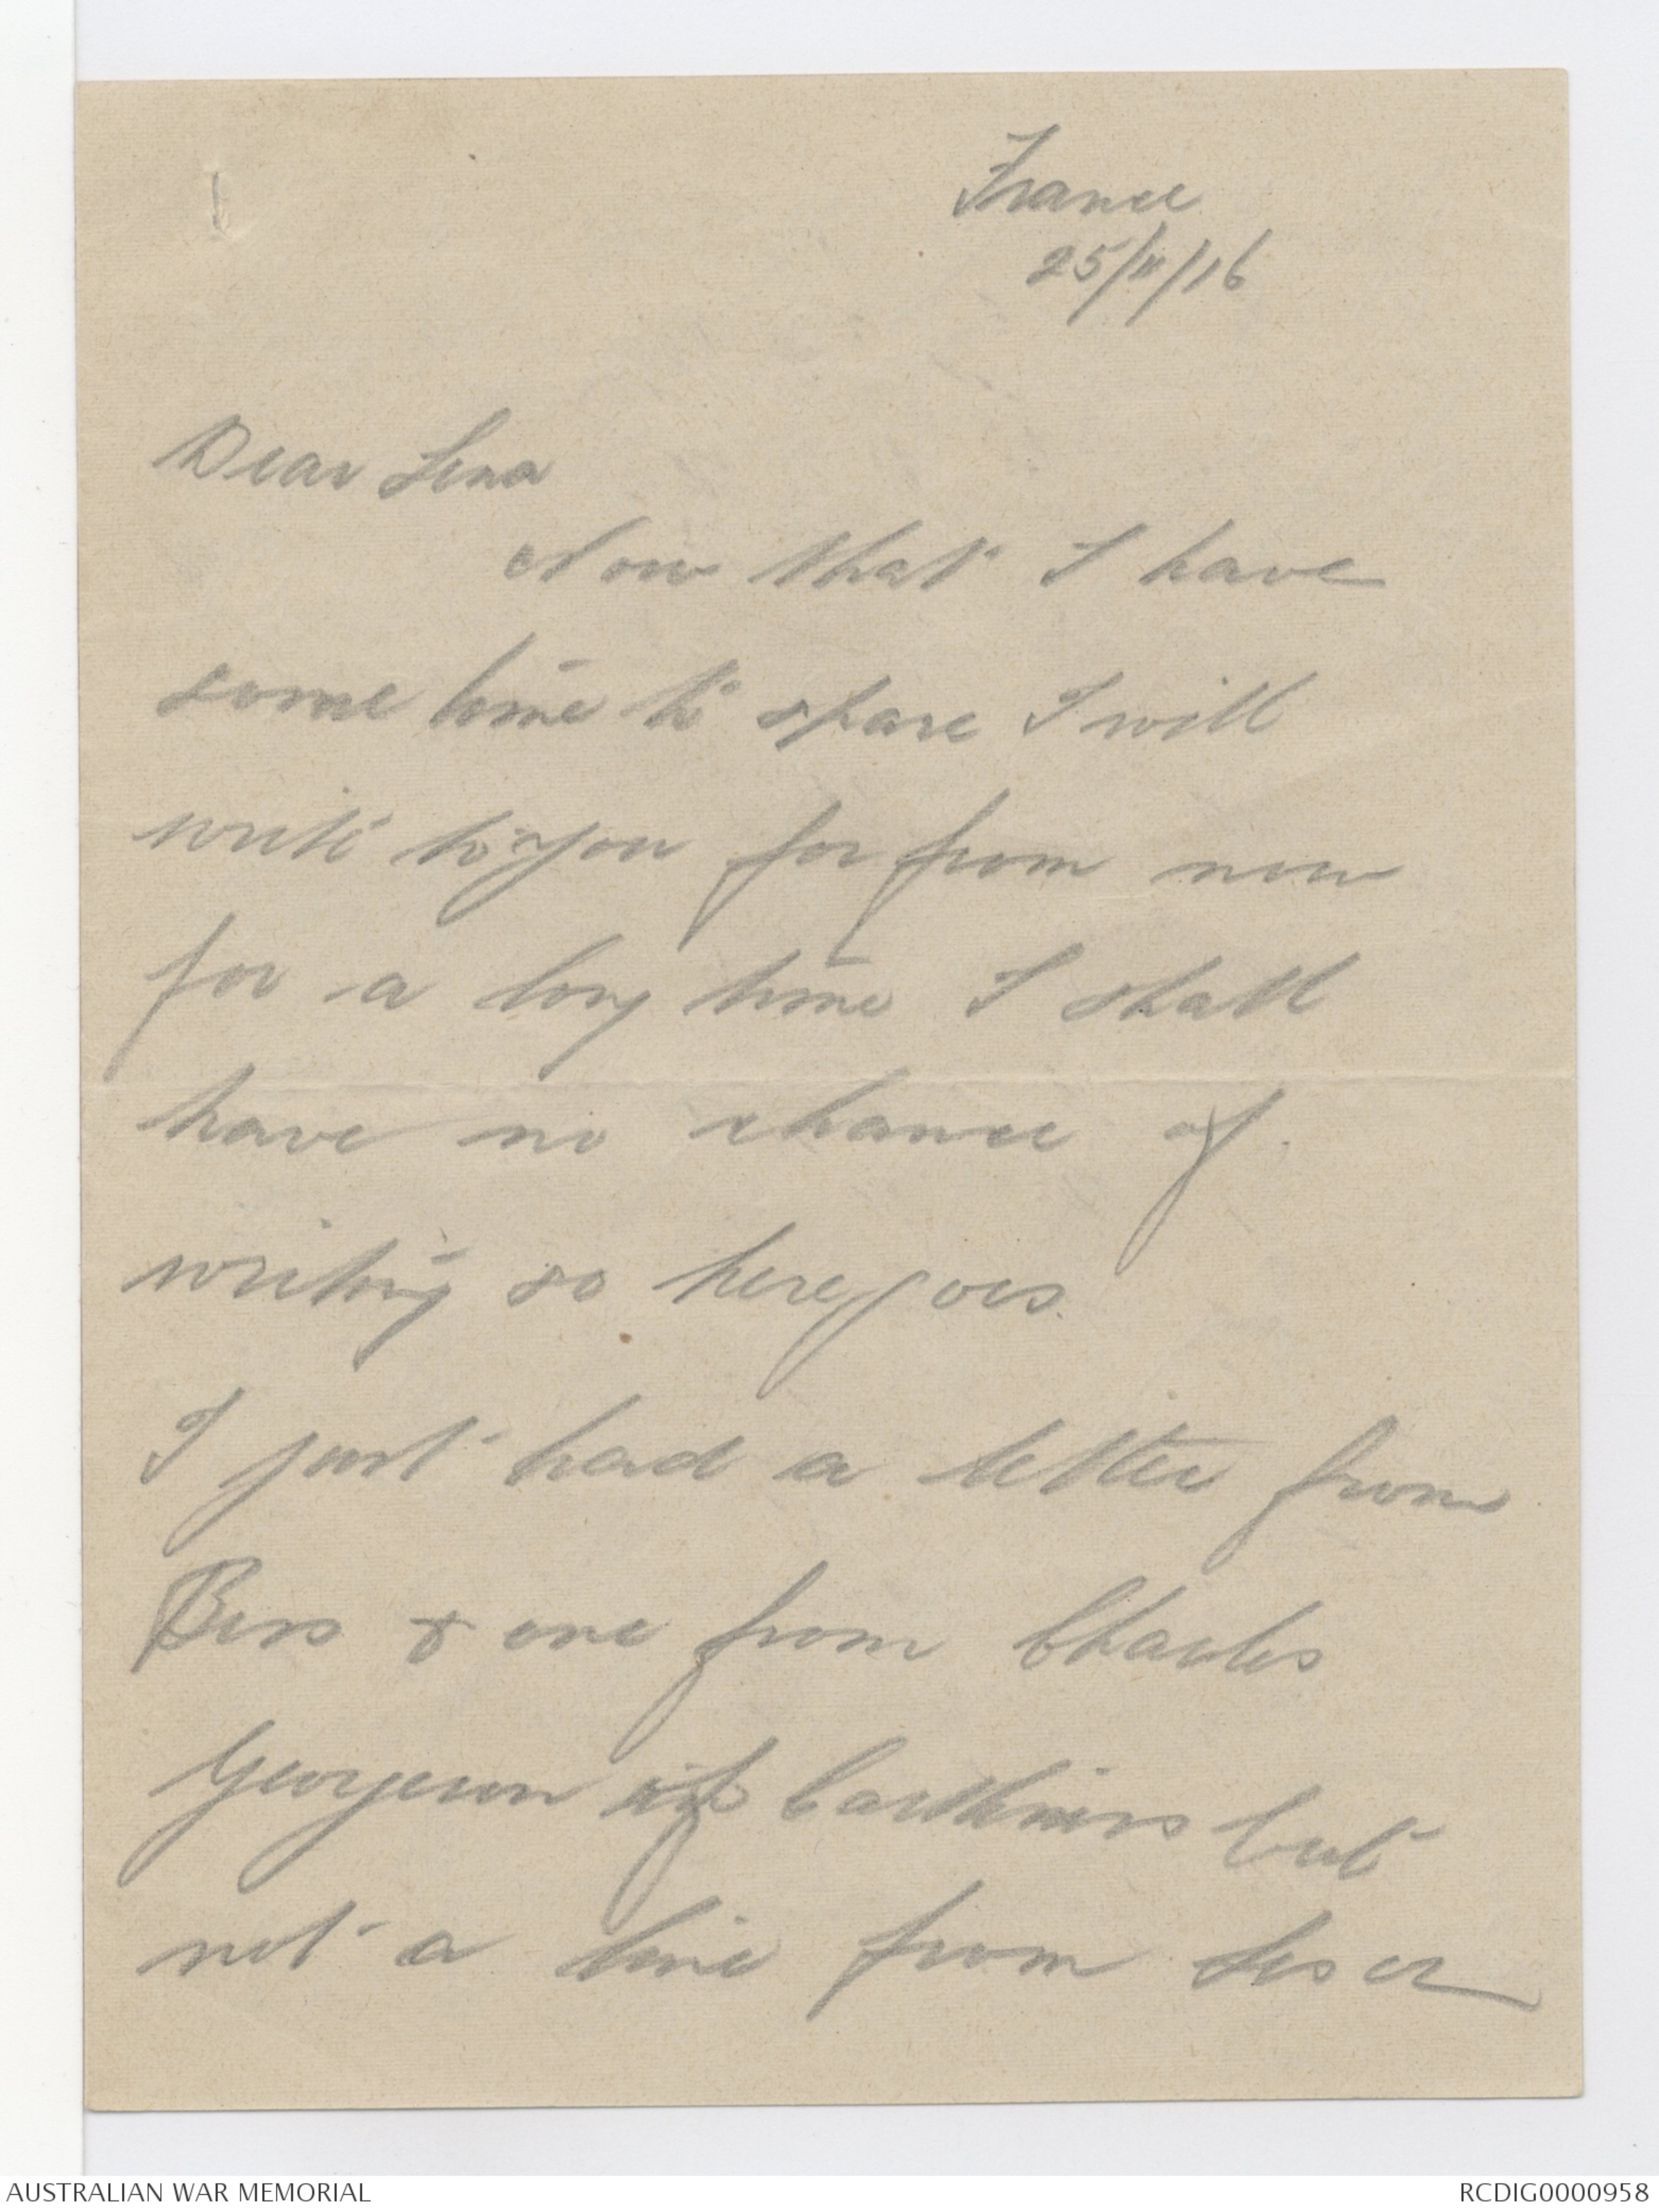 France
25/11/16
Dear Lena
Now that I have
some time to spare I will
write to you for from now
for a long time I shall
have no chance of
writing so here goes.
I just had a letter from
Bess & one from Charles
Georgeson of Caithness but
not a line from Les or
AUSTRALIAN WAR MEMORIAL
RCDIG0000958